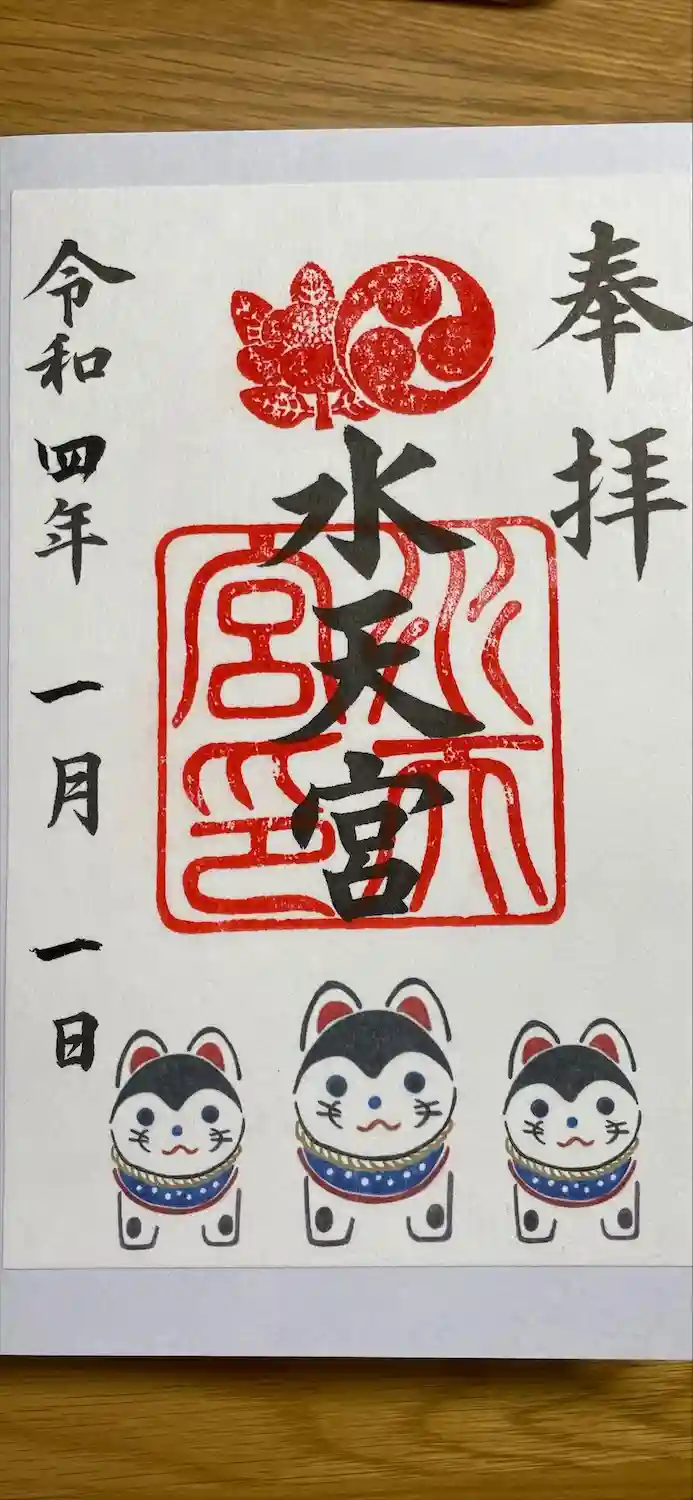 奉拝
水天宮
水天宮印
令和四年 一月 一日